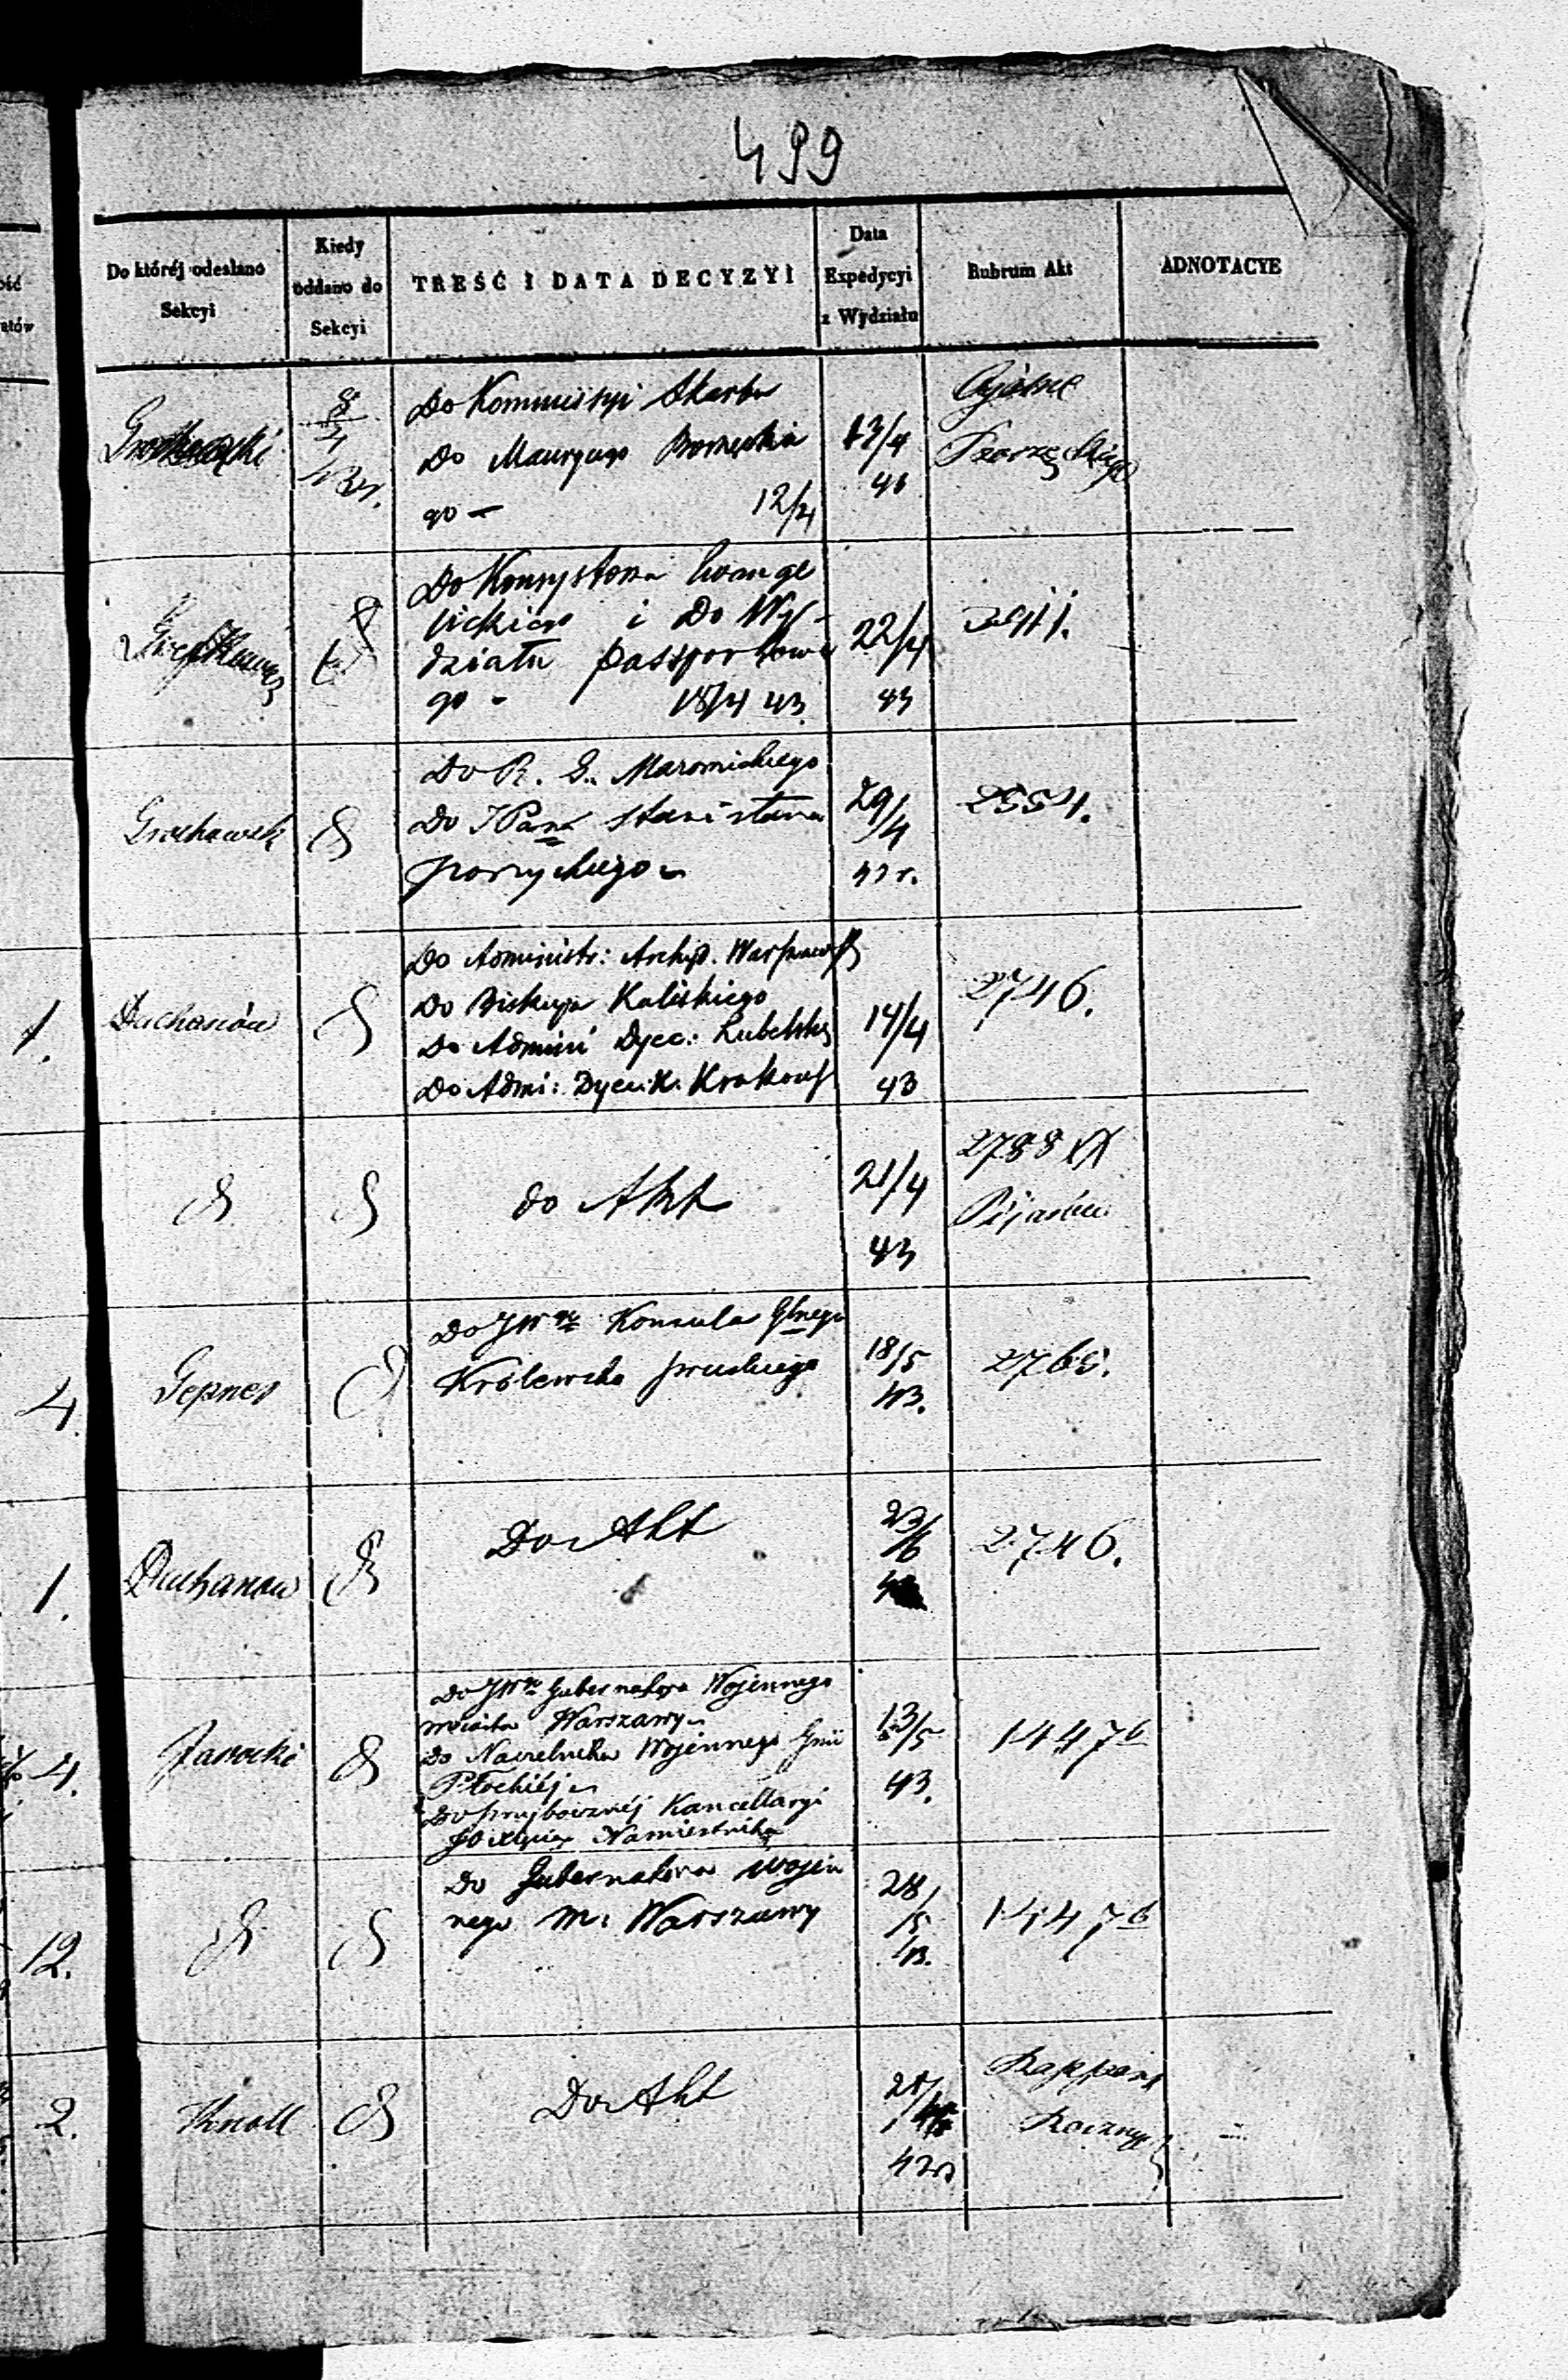 499
Do któréj odesłano Sekcyi
Kiedy oddano do Sekcyi
TREŚĆ I DATA DECYZYI
Data Expedycyi z Wydziału
Rubrum Akt
ADNOTACYE
Do Kommissyi Skarbu
Do Maurycego
go — 12/4
13/4
43
Do Konsystorza Ewange
lickiego i Do Wy-
działu Passportowe
go - 18/4 43
22/4
43
Grochowski
Do R. G.
Do JPana Stanisława
29/4
43 r.
2554.
1.
Duchanów
Do Administr: Archid. Warszaws
Do Biskupa Kaliskiego
Do Admini Dyec: Lubelskiej
Do Admi: Dyec: K. Krakows
14/4
43
2746.
do Akt
21/4
43
2788
Pijarów
4.
Gepner
Do JWgo Konsula Glnego
Królewsko Pruskiego
18/5
43.
2765.
1.
Duchanow
Do Akt
23/6
2746.
4.
Janocki
Do JWgo Gubernatora Wojennego
miasta Warszawy
Do Naczelnika Wojennego Gnii
Płockiéj
Do Przybocznéj Kancellaryi
JO Xięcia Namiestnika
13/5
43.
14476
12.
Do Gubernatora Wojen
nego M. Warszawy
28/5
43.
14476
2.
Knoll
Do Akt
43
Rapport
Roczny